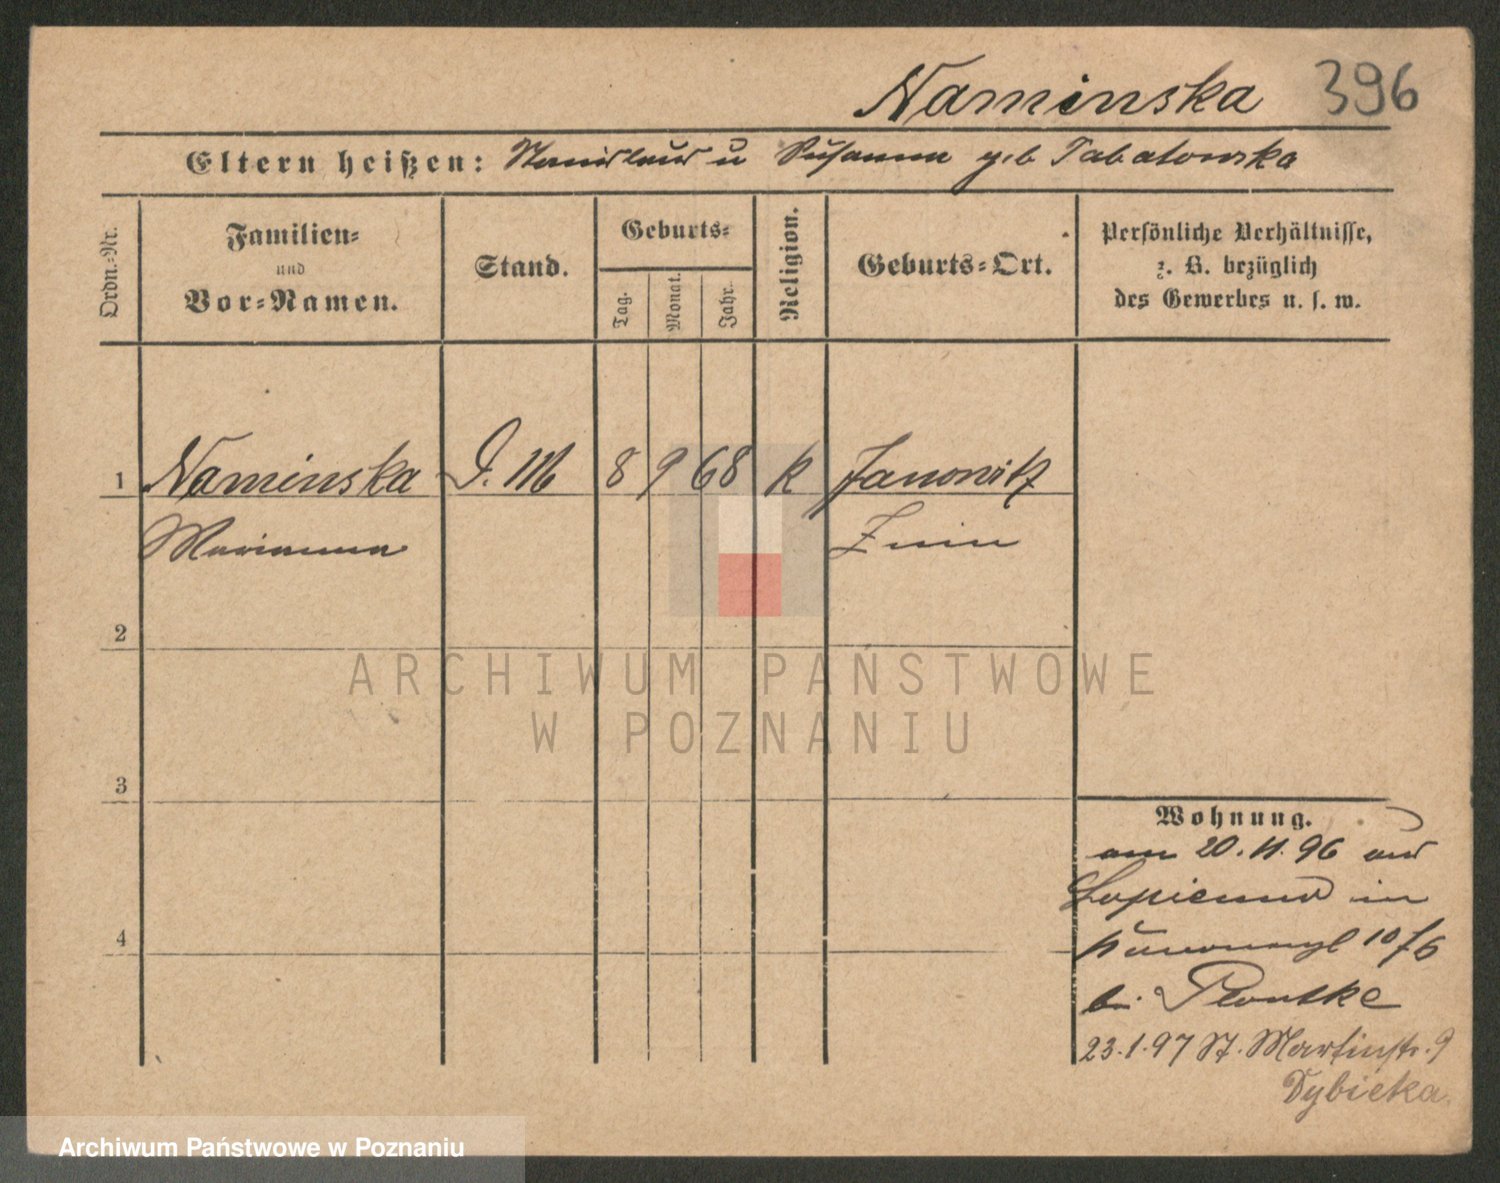 Naminska 396
Eltern heißen: Stanislaus u Susanna geb Tabatowska
Ordn.-Nr.
Familien-
und
Vor-Namen.
Stand.
Geburts-
Tag.
Monat.
Jahr.
Religion.
Geburts-Ort.
Persönliche Verhältnisse,
z. B. bezüglich
des Gewerbes u. s. w.
1 Naminska D. M 8 9 68 k Janowitz
Marianna Znin
2
ARCHIWUM PAŃSTWOWE
W POZNANIU
3
Wohnung.
am 20.11.96 aus
Lopienno in
10/6
bei
4
23.1.97 St. Martinstr. 9
Dybicka.
Archiwum Państwowe w Poznaniu